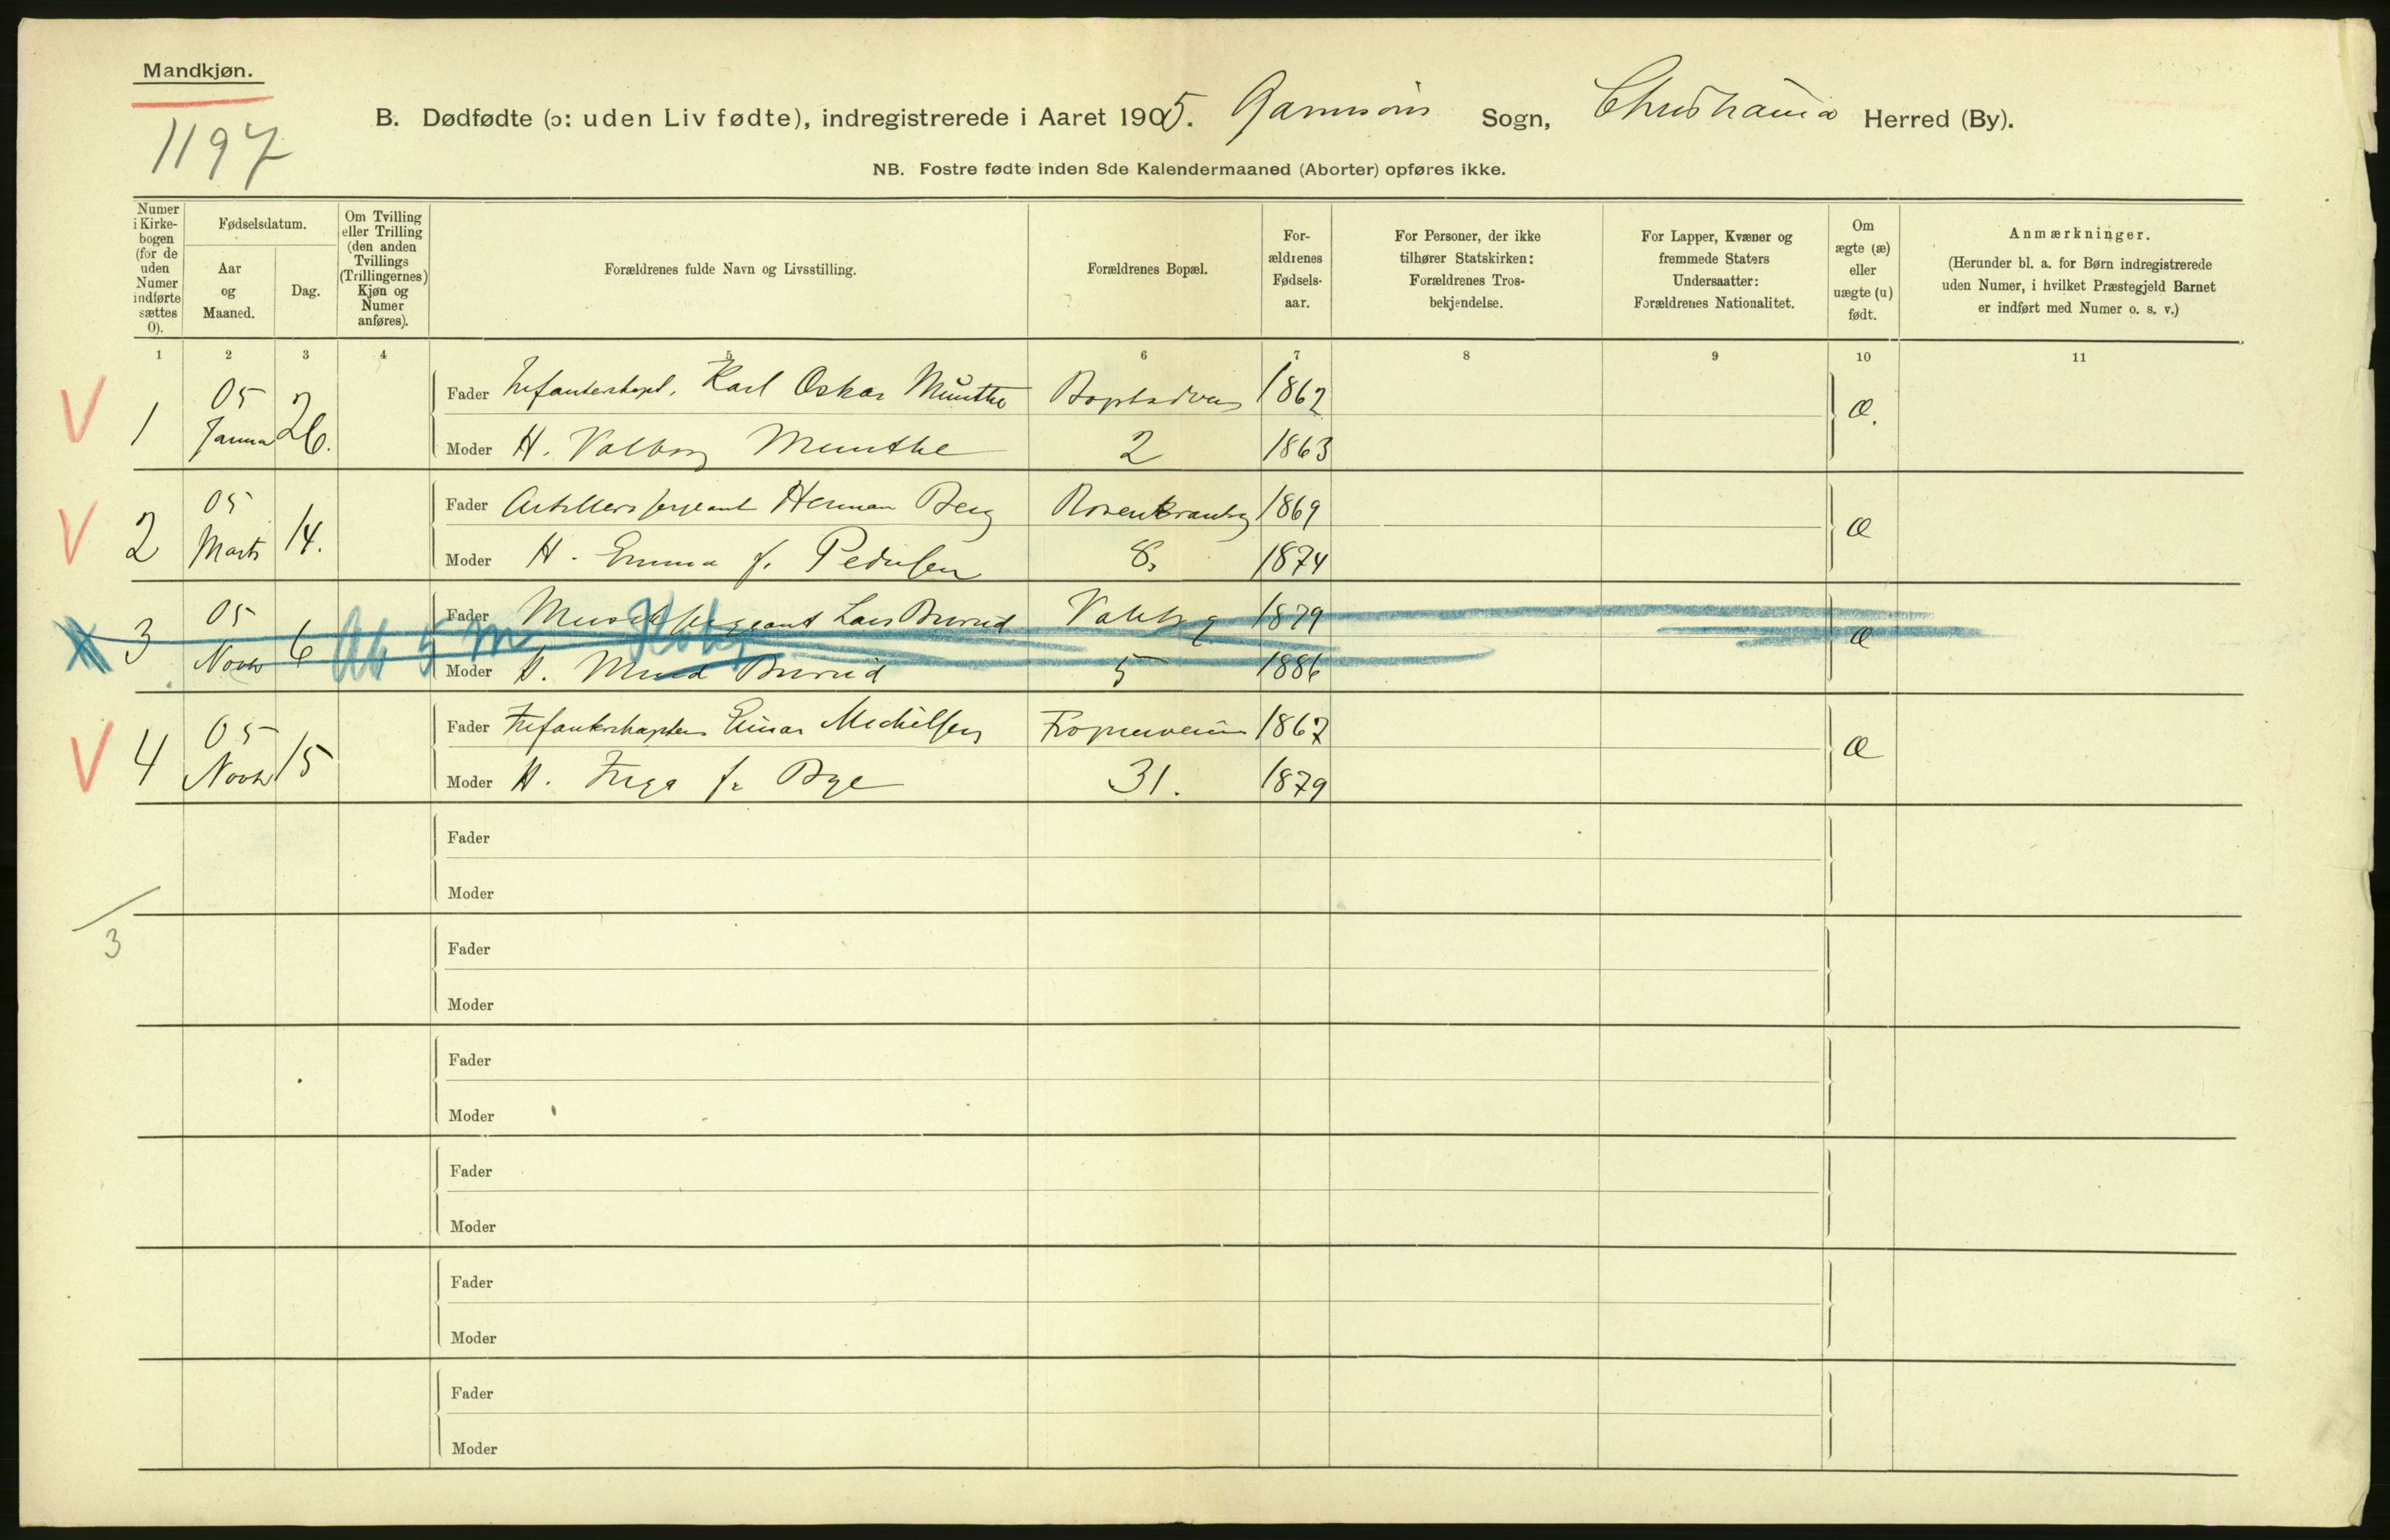 Mandkjøn.
1197
B. Dødfødte (ɔ: uden Liv fødte), indregistrerede i Aaret 1905. Garnisons Sogn, Christiania Herred (By).
NB. Fostre fødte inden 8de Kalendermaaned (Aborter) opføres ikke.
Numer i Kirkebogen (for de uden Numer indførte sættes 0).
Fødselsdatum.
Aar og Maaned.
Dag.
Om Tvilling eller Trilling (den anden Tvillings (Trillingernes) Kjøn og Numer anføres).
Forældrenes fulde Navn og Livsstilling.
Forældrenes Bopæl.
Forældrenes Fødselsaar.
For Personer, der ikke tilhører Statskirken: Forældrenes Trosbekjendelse.
For Lapper, Kvæner og fremmede Staters Undersaatter: Forældrenes Nationalitet.
Om ægte (æ) eller uægte (u) født.
Anmærkninger.
(Herunder bl. a. for Børn indregistrerede uden Numer, i hvilket Præstegjeld Barnet er indført med Numer o. s. v.)
1 2 3 4 5 6 7 8 9 10 11
V 1 05 Janua 26. Fader Infanterikapt. Karl Oskar Munthe 1862 æ.
Moder H. Valborg Munthe 2 1863
V 2 05 Marts 14. Fader Artillerisergeant Herman Berg Rosenkrantzg 1869 æ
Moder H. Emma f. Pedersen 8. 1874
3 05 Novb 6 Fader Musiksergeant Lars 1879 æ
Ab 5 m
Moder H. 5 1886
V 4 05 Novb 15 Fader Infanterikaptein Einar Michelsen Frognerveien 1867 æ
Moder H. Inga f. Bye 31. 1879
Fader
Moder
3
Fader
Moder
Fader
Moder
Fader
Moder
Fader
Moder
Fader
Moder